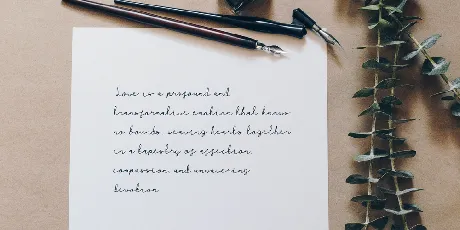 Love is a profound and
transformative emotion that knows
no bounds, weaving hearts together
in a tapestry of affection,
compassion, and unwavering
devotion